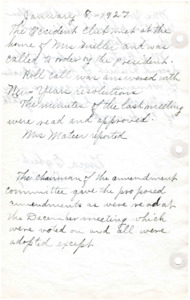 January 8-1927
The Occident Club met at the
home of Mrs Miller and was
called to order by the president.
Roll call was answered with
New Years resolution
The minutes of the last meeting
were read and approved
Mrs Mateer reported
The chairman of the amendment
committee gave the proposed
amendments as were read at
the December meeting which
were voted on and all were
adopted except